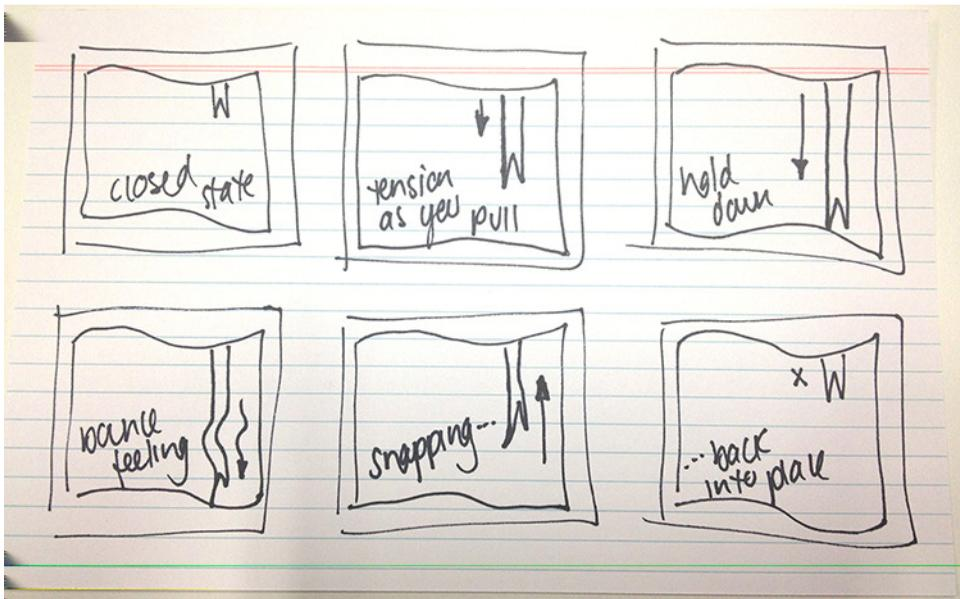 closed state
tension
as you pull
hold
down
bounce
feeling
snapping...
x
...back
into place